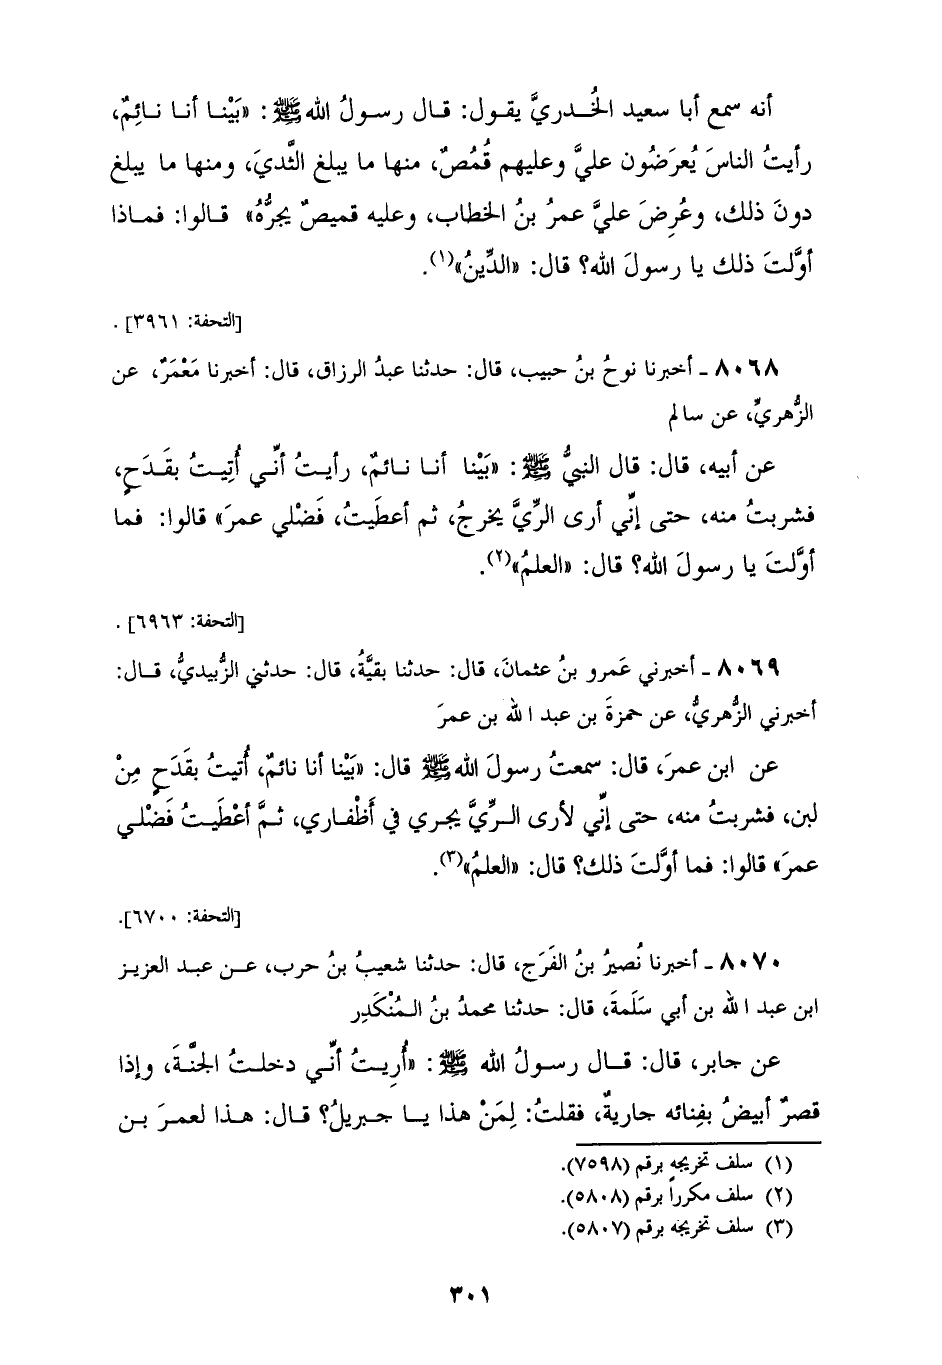 أنه سمع أبا سعيد الخُـدريَّ يقـول: قـال رسـولُ الله ﷺ: «بَيْنـا أنـا نـائِمٌ،
رأيتُ الناسَ يُعرَضُون عليَّ وعليهم قُمُصٌ، منها ما يبلغ الثَّديَ، ومنها ما يبلغ
دونَ ذلك، وعُرِضَ عليَّ عمرُ بنُ الخطاب، وعليه قميصٌ يجرُّهُ» قـالوا: فمـاذا
أوَّلتَ ذلك يا رسولَ الله؟ قال: «الدِّينُ»(١).
[التحفة: ٣٩٦١] .
٨٠٦٨ ـ أخبرنا نوحُ بنُ حبيب، قال: حدثنا عبدُ الرزاق، قال: أخبرنا مَعْمَرٌ، عن
الزُّهريِّ، عن سالم
عن أبيه، قال: قال النبيُّ ﷺ: «بَيْنا أنـا نـائمٌ، رأيـتُ أنّـي أُتِيـتُ بقَـدَحٍ،
فشربتُ منه، حتى إنِّي أرى الرِّيَّ يخرجُ، ثم أعطَيتُ، فَضْلي عمرَ» قالوا: فما
أوَّلتَ يا رسولَ الله؟ قال: «العلمُ»(٢).
[التحفة: ٦٩٦٣] .
٨٠٦٩ ـ أخبرني عَمرو بنُ عثمانَ، قال: حدثنا بقيَّةُ، قال: حدثني الزُّبيديُّ، قـال:
أخبرني الزُّهريُّ، عن حمزةَ بن عبد الله بن عمرَ
عن ابن عمرَ، قال: سمعتُ رسولَ الله ﷺ قال: «بَيْنا أنا نائمٌ، أُتيتُ بقَدَحٍ مِنْ
لبن، فشربتُ منه، حتى إنِّي لأرى الـرِّيَّ يجري في أَظْفـاري، ثـمَّ أعْطَيـتُ فَضْلـي
عمرَ» قالوا: فما أوَّلتَ ذلك؟ قال: «العلمُ»(٣).
[التحفة: ٦٧٠٠].
٨٠٧٠ ـ أخبرنا نُصيرُ بنُ الفَرَج، قال: حدثنا شعيبُ بنُ حرب، عـن عبـد العزيـز
ابن عبد الله بن أبي سَلَمةَ، قال: حدثنا محمدُ بنُ الـمُنْكَدِر
عن جابر، قال: قـال رسـولُ الله ﷺ: «أُرِيـتُ أنِّـي دخلـتُ الجنَّـةَ، وإذا
قصرٌ أبيضُ بفِنائه جاريةٌ، فقلتُ: لِمَنْ هذا يـا جبريلُ؟ قـال: هـذا لعمـرَ بـن
(١) سلف تخريجه برقم (٧٥٩٨).
(٢) سلف مكرراً برقم (٥٨٠٨).
(٣) سلف تخريجه برقم (٥٨٠٧).
٣٠١